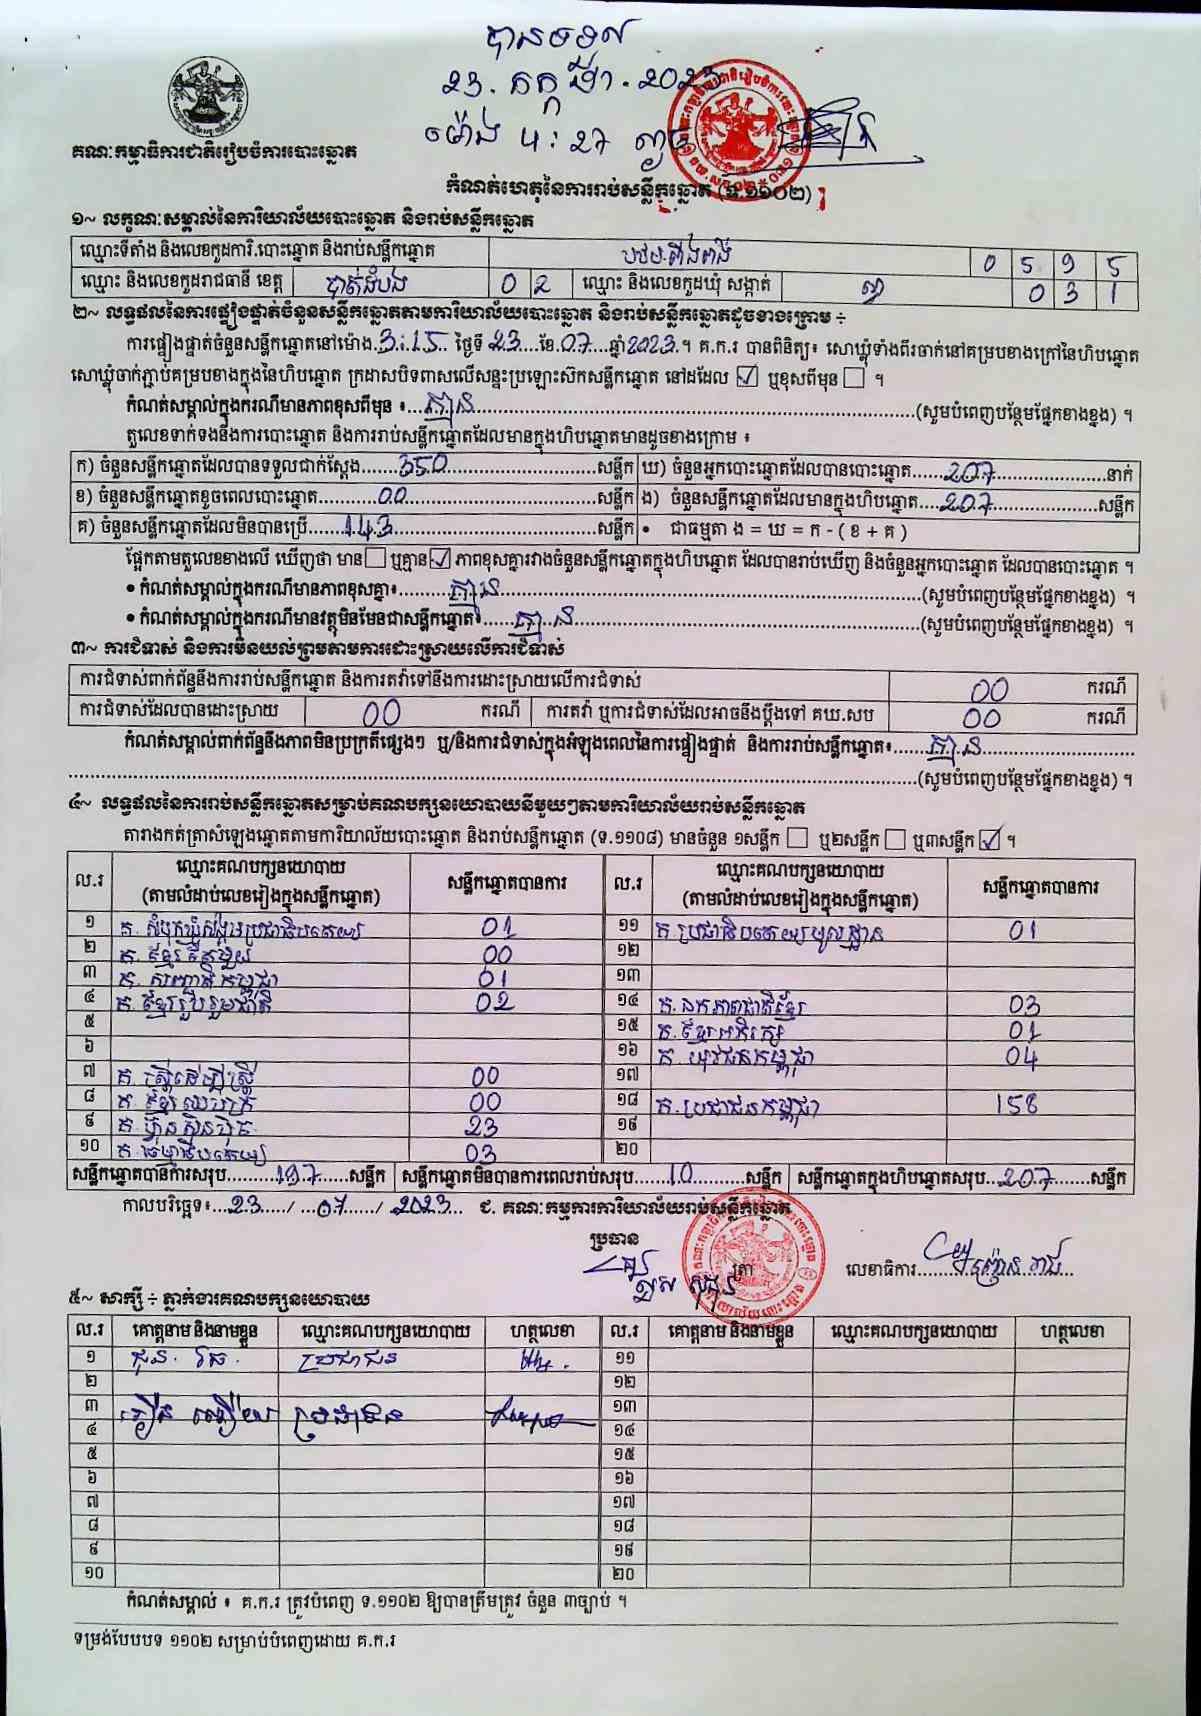 បានទទួល
23. កក្កដា. 2023
ម៉ោង 4:27 ល្ងាច
គណៈកម្មាធិការជាតិរៀបចំការបោះឆ្នោត
កំណត់ហេតុនៃការរាប់សន្លឹកឆ្នោត (ទ.១១០២)
១~ លក្ខណៈសម្គាល់នៃការិយាល័យបោះឆ្នោត និងរាប់សន្លឹកឆ្នោត
ឈ្មោះទីតាំង និងលេខកូដការិ.បោះឆ្នោត និងរាប់សន្លឹកឆ្នោត 0 5 9 5
ឈ្មោះ និងលេខកូដរាជធានី ខេត្ត បាត់ដំបង 0 2 ឈ្មោះ និងលេខកូដឃុំ សង្កាត់ 0 3 1
២~ លទ្ធផលនៃការផ្ទៀងផ្ទាត់ចំនួនសន្លឹកឆ្នោតតាមការិយាល័យបោះឆ្នោត និងរាប់សន្លឹកឆ្នោតដូចខាងក្រោម ÷
ការផ្ទៀងផ្ទាត់ចំនួនសន្លឹកឆ្នោតនៅម៉ោង 3:15 ថ្ងៃទី 23 ខែ 07 ឆ្នាំ 2023 ។ គ.ក.រ បានពិនិត្យ៖ សោឃ្លុំទាំងពីរចាក់នៅគម្របខាងក្រៅនៃហិបឆ្នោត
សោឃ្លុំចាក់ភ្ជាប់គម្របខាងក្នុងនៃហិបឆ្នោត ក្រដាសបិទពាសលើសន្ទះប្រឡោះស៊កសន្លឹកឆ្នោត នៅដដែល ☑ ឬខុសពីមុន ☐ ។
កំណត់សម្គាល់ក្នុងករណីមានភាពខុសពីមុន ៖ គ្មាន (សូមបំពេញបន្ថែមផ្នែកខាងខ្នង) ។
តួលេខទាក់ទងនឹងការបោះឆ្នោត និងការរាប់សន្លឹកឆ្នោតដែលមានក្នុងហិបឆ្នោតមានដូចខាងក្រោម ៖
ក) ចំនួនសន្លឹកឆ្នោតដែលបានទទួលជាក់ស្តែង 350 សន្លឹក ឃ) ចំនួនអ្នកបោះឆ្នោតដែលបានបោះឆ្នោត 207 នាក់
ខ) ចំនួនសន្លឹកឆ្នោតខូចពេលបោះឆ្នោត 00 សន្លឹក ង) ចំនួនសន្លឹកឆ្នោតដែលមានក្នុងហិបឆ្នោត 207 សន្លឹក
គ) ចំនួនសន្លឹកឆ្នោតដែលមិនបានប្រើ 143 សន្លឹក • ជាធម្មតា ង = ឃ = ក - ( ខ + គ )
ផ្អែកតាមតួលេខខាងលើ ឃើញថា មាន ☐ ឬគ្មាន ☑ ភាពខុសគ្នារវាងចំនួនសន្លឹកឆ្នោតក្នុងហិបឆ្នោត ដែលបានរាប់ឃើញ និងចំនួនអ្នកបោះឆ្នោត ដែលបានបោះឆ្នោត ។
• កំណត់សម្គាល់ក្នុងករណីមានភាពខុសគ្នា៖ គ្មាន (សូមបំពេញបន្ថែមផ្នែកខាងខ្នង) ។
• កំណត់សម្គាល់ក្នុងករណីមានវត្ថុមិនមែនជាសន្លឹកឆ្នោត៖ គ្មាន (សូមបំពេញបន្ថែមផ្នែកខាងខ្នង) ។
៣~ ការជំទាស់ និងការមិនយល់ព្រមតាមការដោះស្រាយលើការជំទាស់
ការជំទាស់ពាក់ព័ន្ធនឹងការរាប់សន្លឹកឆ្នោត និងការតវ៉ាទៅនឹងការដោះស្រាយលើការជំទាស់ 00 ករណី
ការជំទាស់ដែលបានដោះស្រាយ 00 ករណី ការតវ៉ា ឬការជំទាស់ដែលអាចនឹងប្តឹងទៅ គឃ.សប 00 ករណី
កំណត់សម្គាល់ពាក់ព័ន្ធនឹងភាពមិនប្រក្រតីផ្សេងៗ ឬ/និងការជំទាស់ក្នុងអំឡុងពេលនៃការផ្ទៀងផ្ទាត់ និងការរាប់សន្លឹកឆ្នោត៖ គ្មាន
(សូមបំពេញបន្ថែមផ្នែកខាងខ្នង) ។
៤~ លទ្ធផលនៃការរាប់សន្លឹកឆ្នោតសម្រាប់គណបក្សនយោបាយនីមួយៗតាមការិយាល័យរាប់សន្លឹកឆ្នោត
តារាងកត់ត្រាសំឡេងឆ្នោតតាមការិយាល័យបោះឆ្នោត និងរាប់សន្លឹកឆ្នោត (ទ.១១០៨) មានចំនួន ១សន្លឹក ☐ ឬ២សន្លឹក ☐ ឬ៣សន្លឹក ☑ ។
ល.រ ឈ្មោះគណបក្សនយោបាយ (តាមលំដាប់លេខរៀងក្នុងសន្លឹកឆ្នោត) សន្លឹកឆ្នោតបានការ ល.រ ឈ្មោះគណបក្សនយោបាយ (តាមលំដាប់លេខរៀងក្នុងសន្លឹកឆ្នោត) សន្លឹកឆ្នោតបានការ
១ គ. សំបុកឃ្មុំសង្គមប្រជាធិបតេយ្យ 01 ១១ គ. ប្រជាធិបតេយ្យមូលដ្ឋាន 01
២ គ. ខ្មែរតែមួយ 00 ១២
៣ គ. សញ្ជាតិកម្ពុជា 01 ១៣
៤ គ. ខ្មែររួបរួមជាតិ 02 ១៤ គ. ឯកភាពជាតិខ្មែរ 03
៥ ១៥ គ. ខ្មែរអភិរក្ស 01
៦ ១៦ គ. យុវជនកម្ពុជា 04
៧ គ. ស្ត្រីដើម្បីស្ត្រី 00 ១៧
៨ គ. ខ្មែរឈប់ក្រ 00 ១៨ គ. ប្រជាជនកម្ពុជា 158
៩ គ. ហ៊្វុនស៊ិនប៉ិច 23 ១៩
១០ គ. ធម្មាធិបតេយ្យ 03 ២០
សន្លឹកឆ្នោតបានការសរុប 197 សន្លឹក សន្លឹកឆ្នោតមិនបានការពេលរាប់សរុប 10 សន្លឹក សន្លឹកឆ្នោតក្នុងហិបឆ្នោតសរុប 207 សន្លឹក
កាលបរិច្ឆេទ៖ 23 / 07 / 2023 ជ. គណៈកម្មការការិយាល័យរាប់សន្លឹកឆ្នោត
ប្រធាន
ត្រា លេខាធិការ
៥~ សាក្សី ÷ ភ្នាក់ងារគណបក្សនយោបាយ
ល.រ គោត្តនាម និងនាមខ្លួន ឈ្មោះគណបក្សនយោបាយ ហត្ថលេខា ល.រ គោត្តនាម និងនាមខ្លួន ឈ្មោះគណបក្សនយោបាយ ហត្ថលេខា
១ ប្រជាជន ១១
២ ១២
៣ ១៣
៤ ១៤
៥ ១៥
៦ ១៦
៧ ១៧
៨ ១៨
៩ ១៩
១០ ២០
កំណត់សម្គាល់ ៖ គ.ក.រ ត្រូវបំពេញ ទ.១១០២ ឱ្យបានត្រឹមត្រូវ ចំនួន ៣ច្បាប់ ។
ទម្រង់បែបបទ ១១០២ សម្រាប់បំពេញដោយ គ.ក.រ